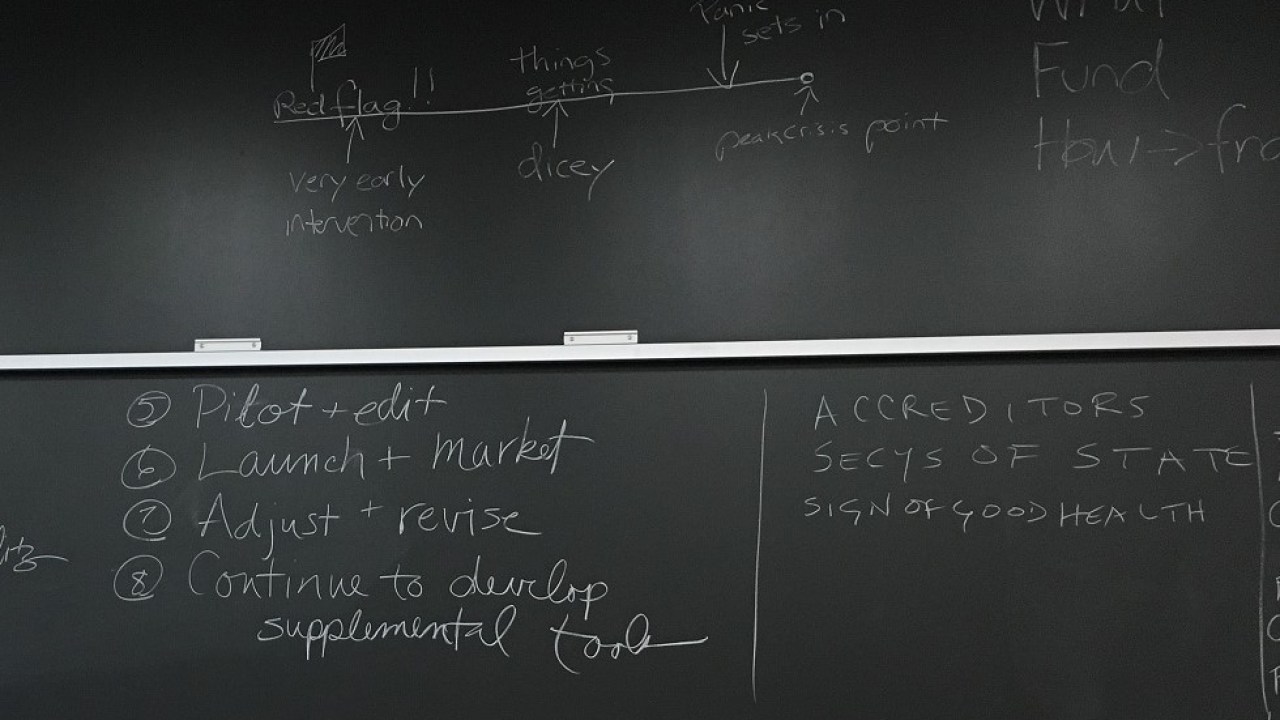 Panic
sets in
things
getting
Red flag!!
dicey
very early
intervention
peak crisis point
What
Fund
How->
5 Pilot + edit
6 Launch + market
7 Adjust + revise
8 Continue to develop
supplemental tools
ACCREDITORS
SECYS OF STATE
SIGN OF GOOD HEALTH